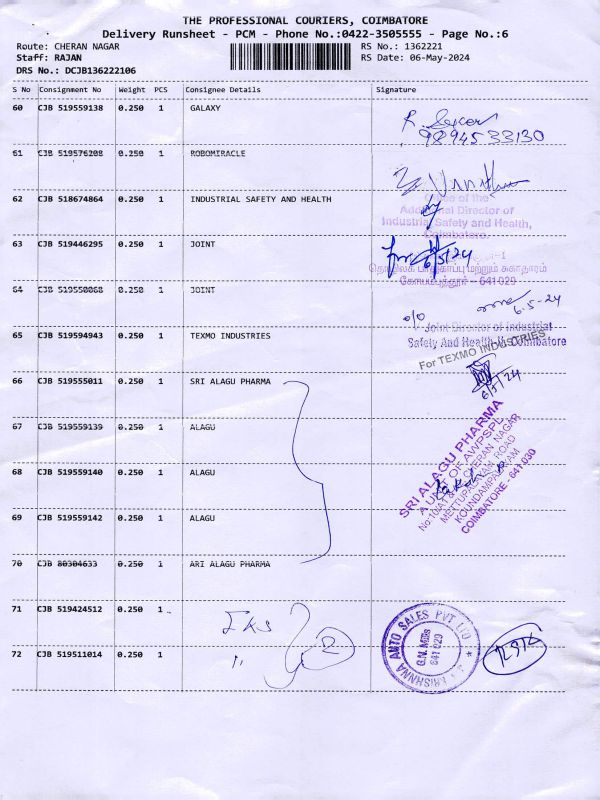 THE PROFESSIONAL COURIERS, COIMBATORE
Delivery Runsheet - PCM - Phone No.:0422-3505555 - Page No.:6
Route: CHERAN NAGAR RS No.: 1362221
Staff: RAJAN RS Date: 06-May-2024
DRS No.: DCJB136222106
S No Consignment No Weight PCS Consignee Details Signature
60 CJB 519559138 0.250 1 GALAXY
9894533130
61 CJB 519576208 0.250 1 ROBOMIRACLE
62 CJB 518674864 0.250 1 INDUSTRIAL SAFETY AND HEALTH
Office of the
Additional Director of
Industrial Safety and Health,
Coimbatore.
63 CJB 519446295 0.250 1 JOINT
6/5/24
கோயம்புத்தூர் - 641 029
64 CJB 519550068 0.250 1 JOINT
6-5-24
o/o Joint Director of Industrial
Safety And Health-II, Coimbatore
65 CJB 519594943 0.250 1 TEXMO INDUSTRIES
For TEXMO INDUSTRIES
6/5/24
66 CJB 519555011 0.250 1 SRI ALAGU PHARMA
67 CJB 519559139 0.250 1 ALAGU
68 CJB 519559140 0.250 1 ALAGU
69 CJB 519559142 0.250 1 ALAGU
SRI ALAGU PHARMA
A UNIT OF AWPSPL
CHERAN NAGAR
METTUPALAYAM ROAD
KOUNDAMPALAYAM
COIMBATORE - 641 030
70 CJB 80304633 0.250 1 ARI ALAGU PHARMA
71 CJB 519424512 0.250 1
72 CJB 519511014 0.250 1
2
AUTO SALES PVT LTD
G.N. Mills
641 029